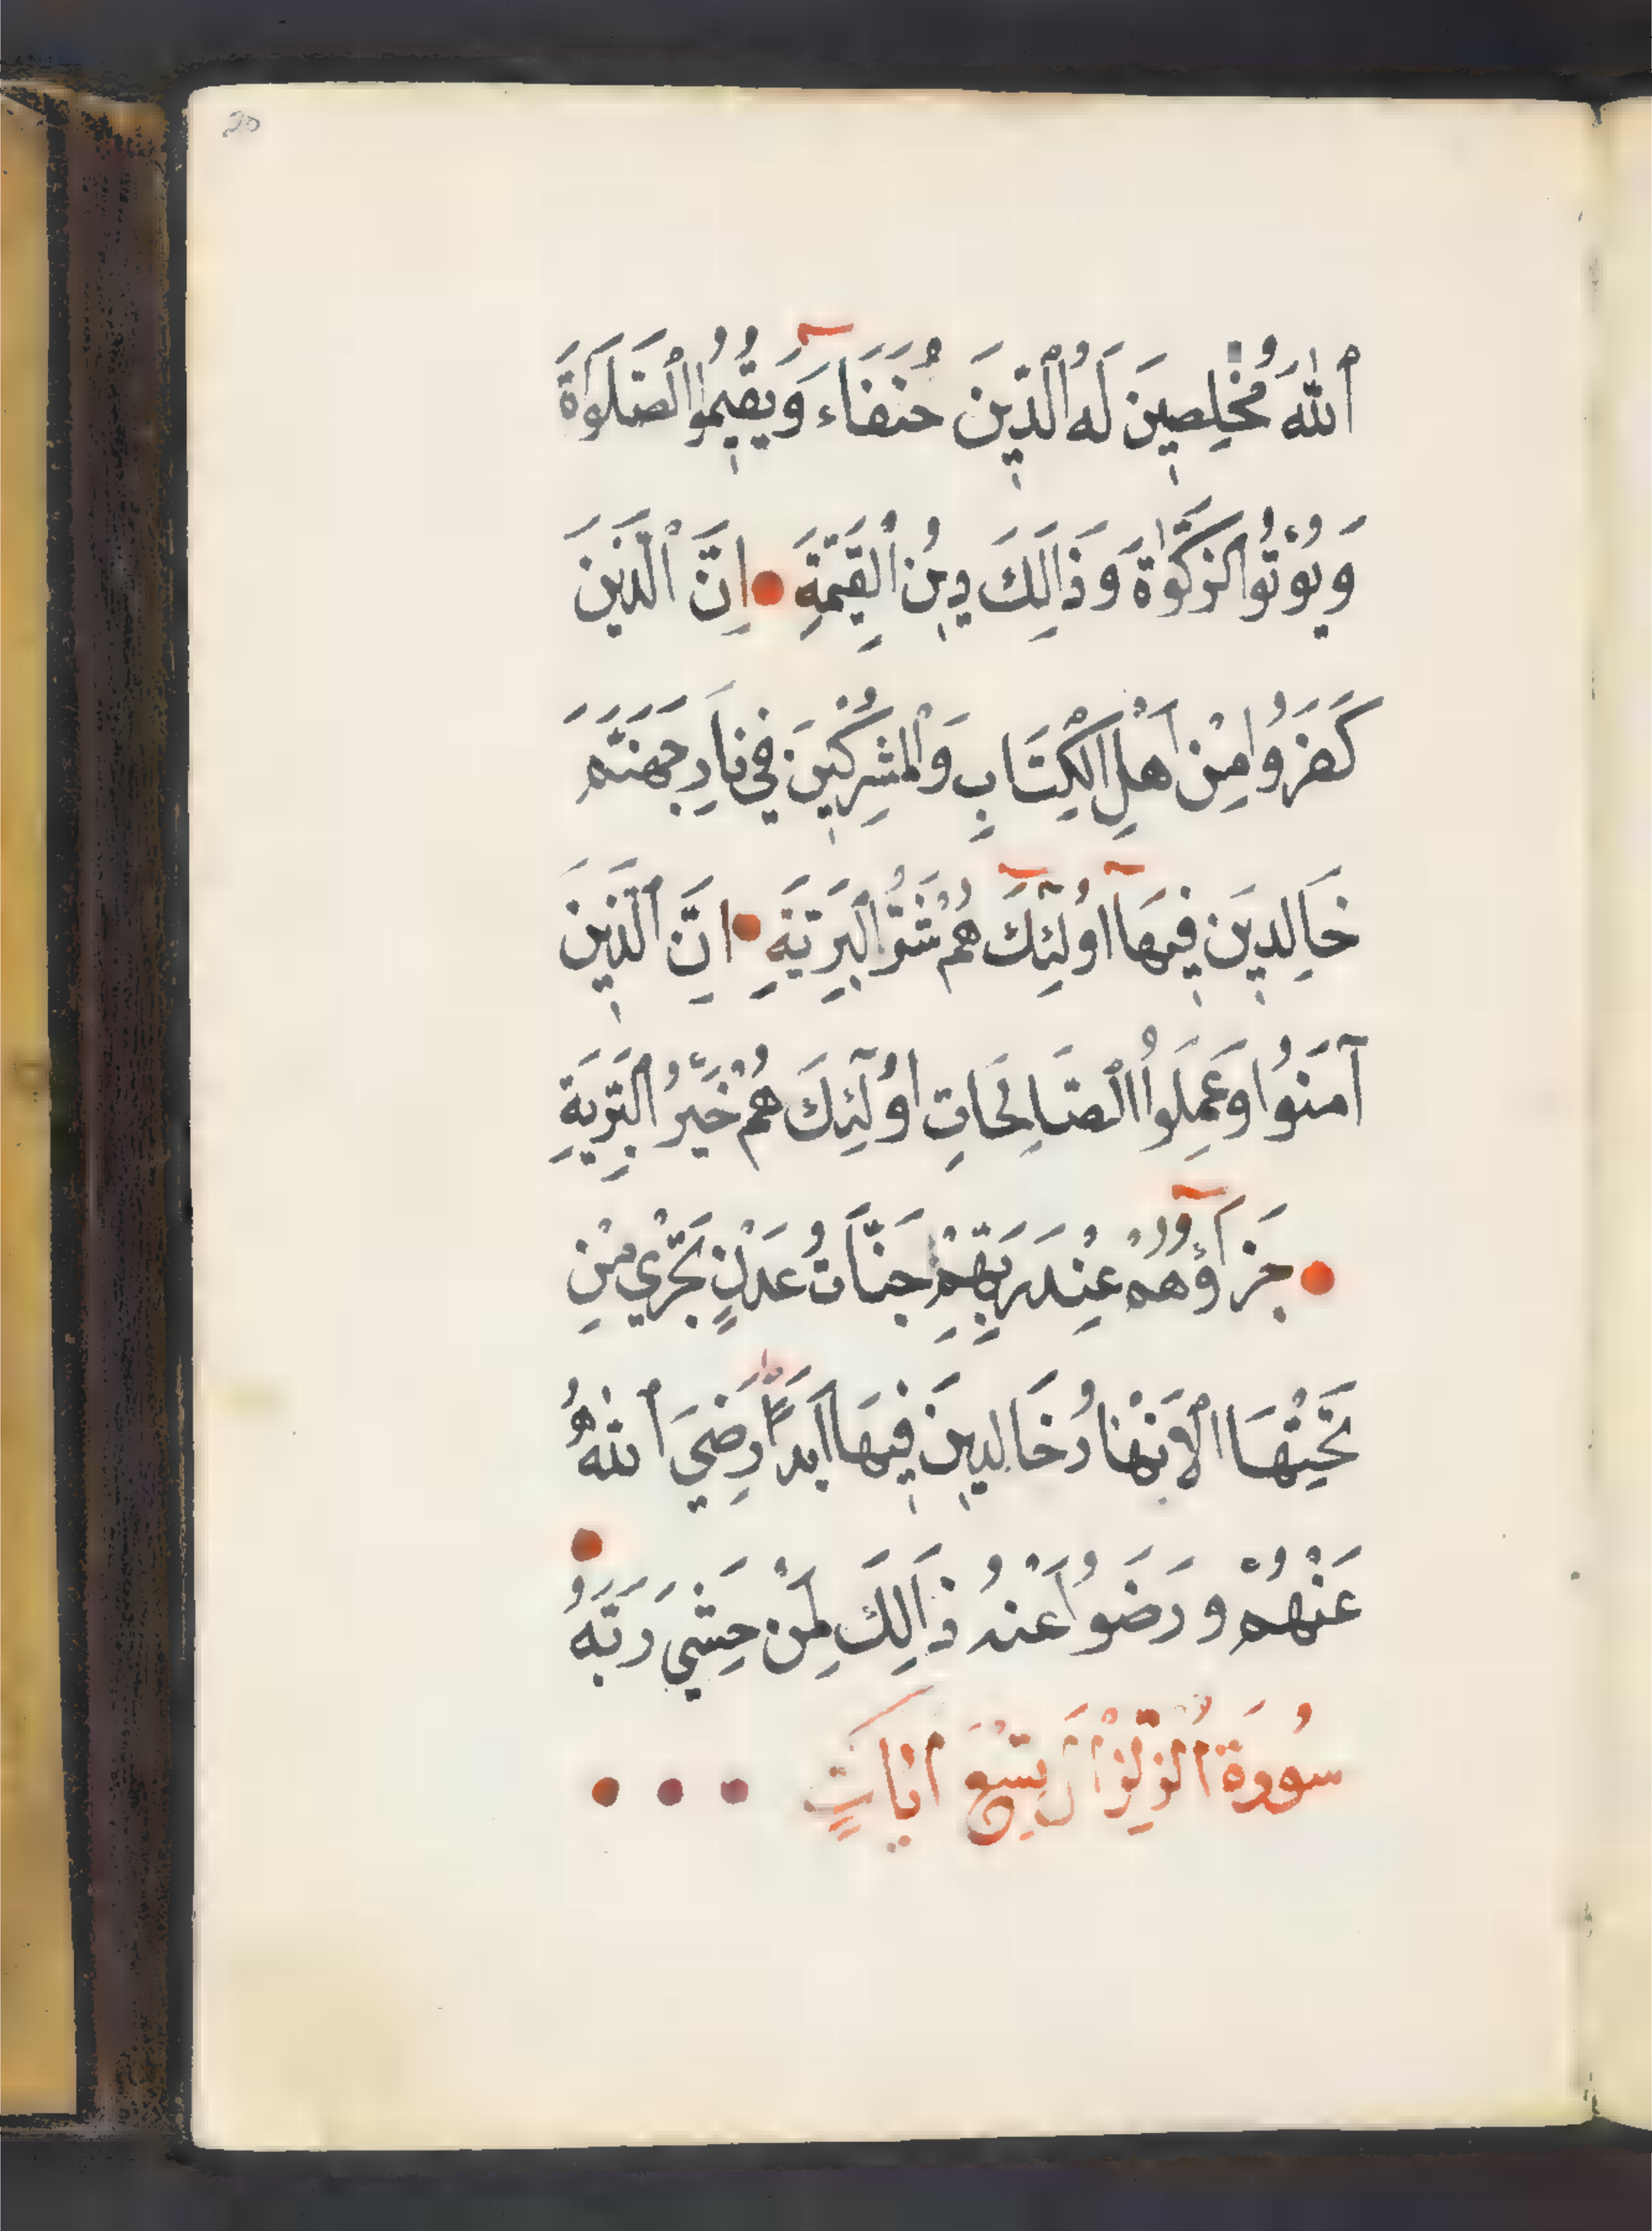 20
ٱللَّهَ مُخْلِصِينَ لَهُ ٱلدِّينَ حُنَفَآءَ وَيُقِيمُوا ٱلصَّلَوٰةَ
وَيُؤْتُوا ٱلزَّكَوٰةَ وَذَالِكَ دِينُ ٱلْقَيِّمَةِ ● اِنَّ ٱلَّذِينَ
كَفَرُوا مِنْ اَهْلِ ٱلْكِتَابِ وَٱلْمُشْرِكِينَ فِي نَارِ جَهَنَّمَ
خَالِدِينَ فِيهَآ اُولَٓئِكَ هُمْ شَرُّ ٱلْبَرِيَّةِ ● اِنَّ ٱلَّذِينَ
آمَنُوا وَعَمِلُوا ٱلصَّالِحَاتِ اُولَٓئِكَ هُمْ خَيْرُ ٱلْبَرِيَّةِ
● جَزَآؤُهُمْ عِنْدَ رَبِّهِمْ جَنَّاتُ عَدْنٍ تَجْرِي مِنْ
تَحْتِهَا ٱلْاَنْهَارُ خَالِدِينَ فِيهَا اَبَدًا رَضِيَ ٱللَّهُ
عَنْهُمْ و رَضُوا عَنْهُ ذَالِكَ لِمَنْ خَشِيَ رَبَّهُ ●
سُورَةُ ٱلزِّلْزَالِ تِسْعُ اٰيَاتٍ ● ● ●